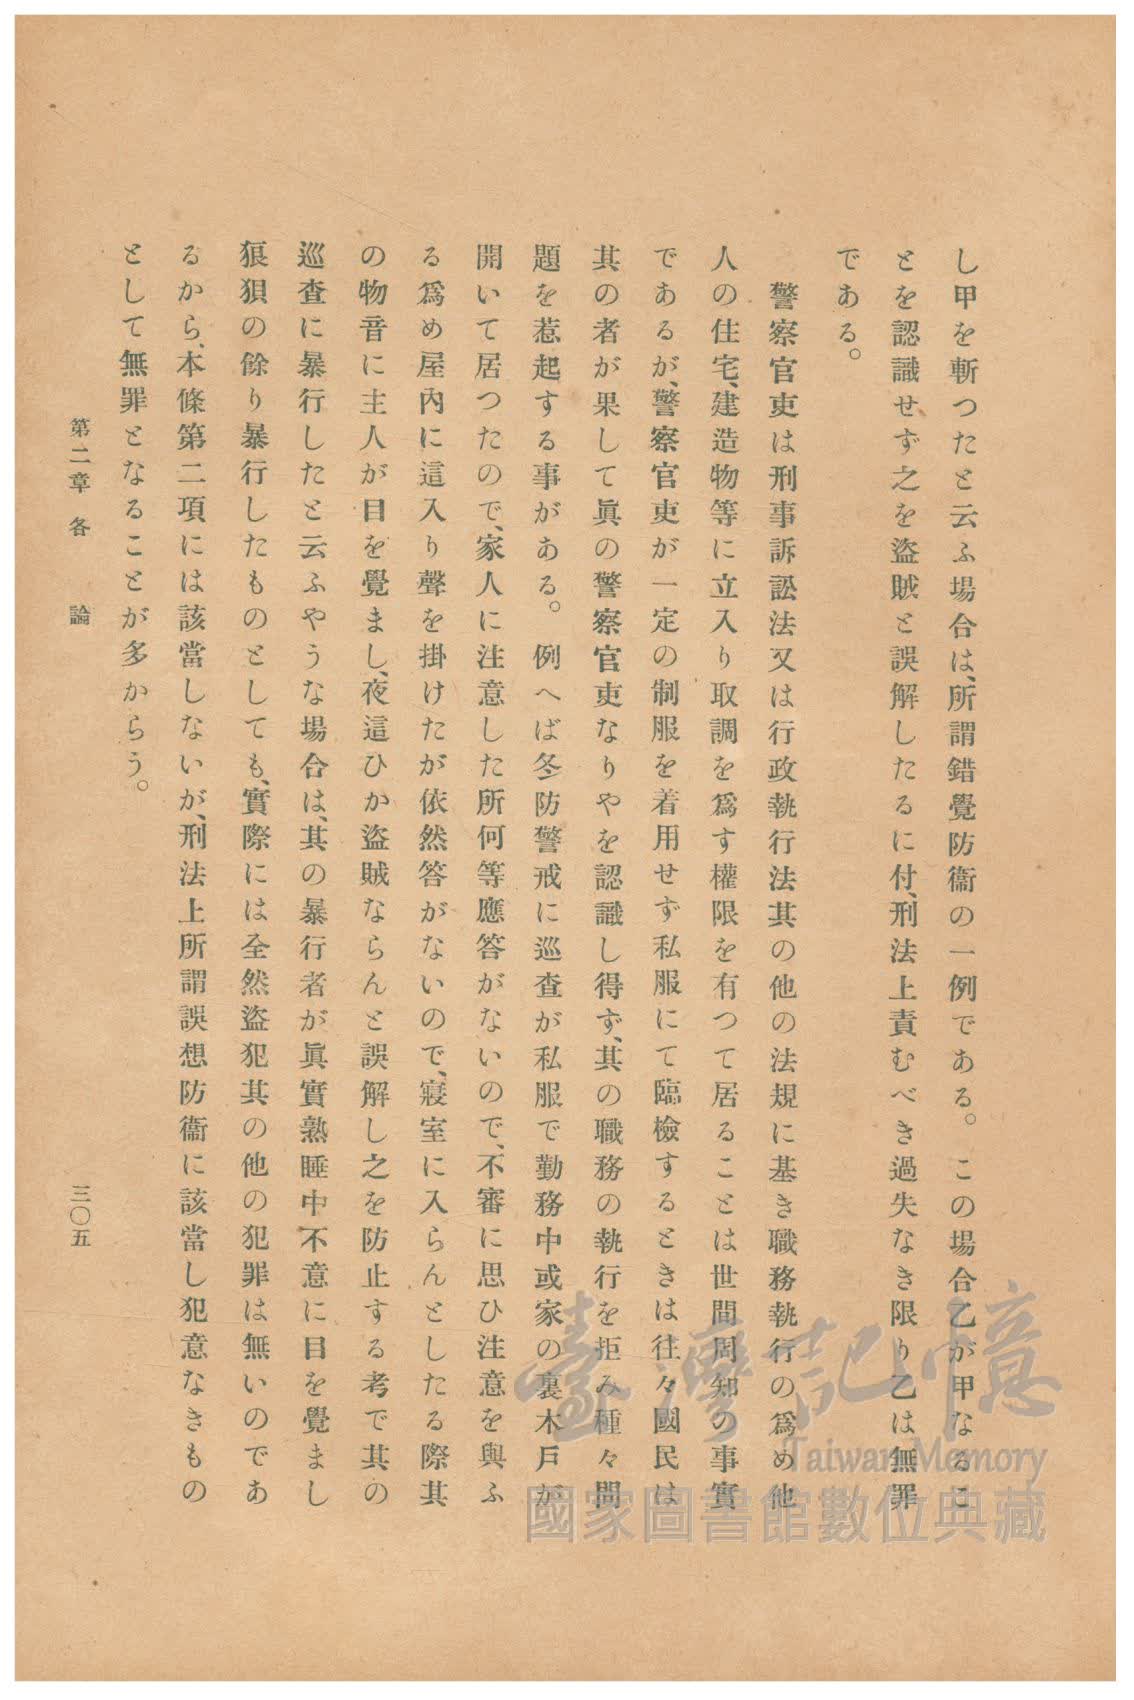 し甲を斬つたと云ふ場合は、所謂錯覺防衞の一例である。この場合乙が甲なるこ
とを認識せず之を盜賊と誤解したるに付、刑法上責むべき過失なき限り乙は無罪
である。
警察官吏は刑事訴訟法又は行政執行法其の他の法規に基き職務執行の爲め他
人の住宅、建造物等に立入り取調を爲す權限を有つて居ることは世間周知の事實
であるが、警察官吏が一定の制服を着用せず私服にて臨檢するときは往々國民は
其の者が果して眞の警察官吏なりやを認識し得ず、其の職務の執行を拒み種々問
題を惹起する事がある。例へば冬防警戒に巡査が私服で勤務中或家の裏木戶が
開いて居つたので、家人に注意した所何等應答がないので、不審に思ひ注意を與ふ
る爲め屋內に這入り聲を掛けたが依然答がないので、寢室に入らんとしたる際其
の物音に主人が目を覺まし、夜這ひか盜賊ならんと誤解し之を防止する考で其の
巡査に暴行したと云ふやうな場合は、其の暴行者が眞實熟睡中不意に目を覺まし
狼狽の餘り暴行したものとしても、實際には全然盜犯其の他の犯罪は無いのであ
るから、本條第二項には該當しないが、刑法上所謂誤想防衞に該當し犯意なきもの
として無罪となることが多からう。
第二章 各 論
三〇五
臺灣記憶
Taiwan Memory
國家圖書館數位典藏